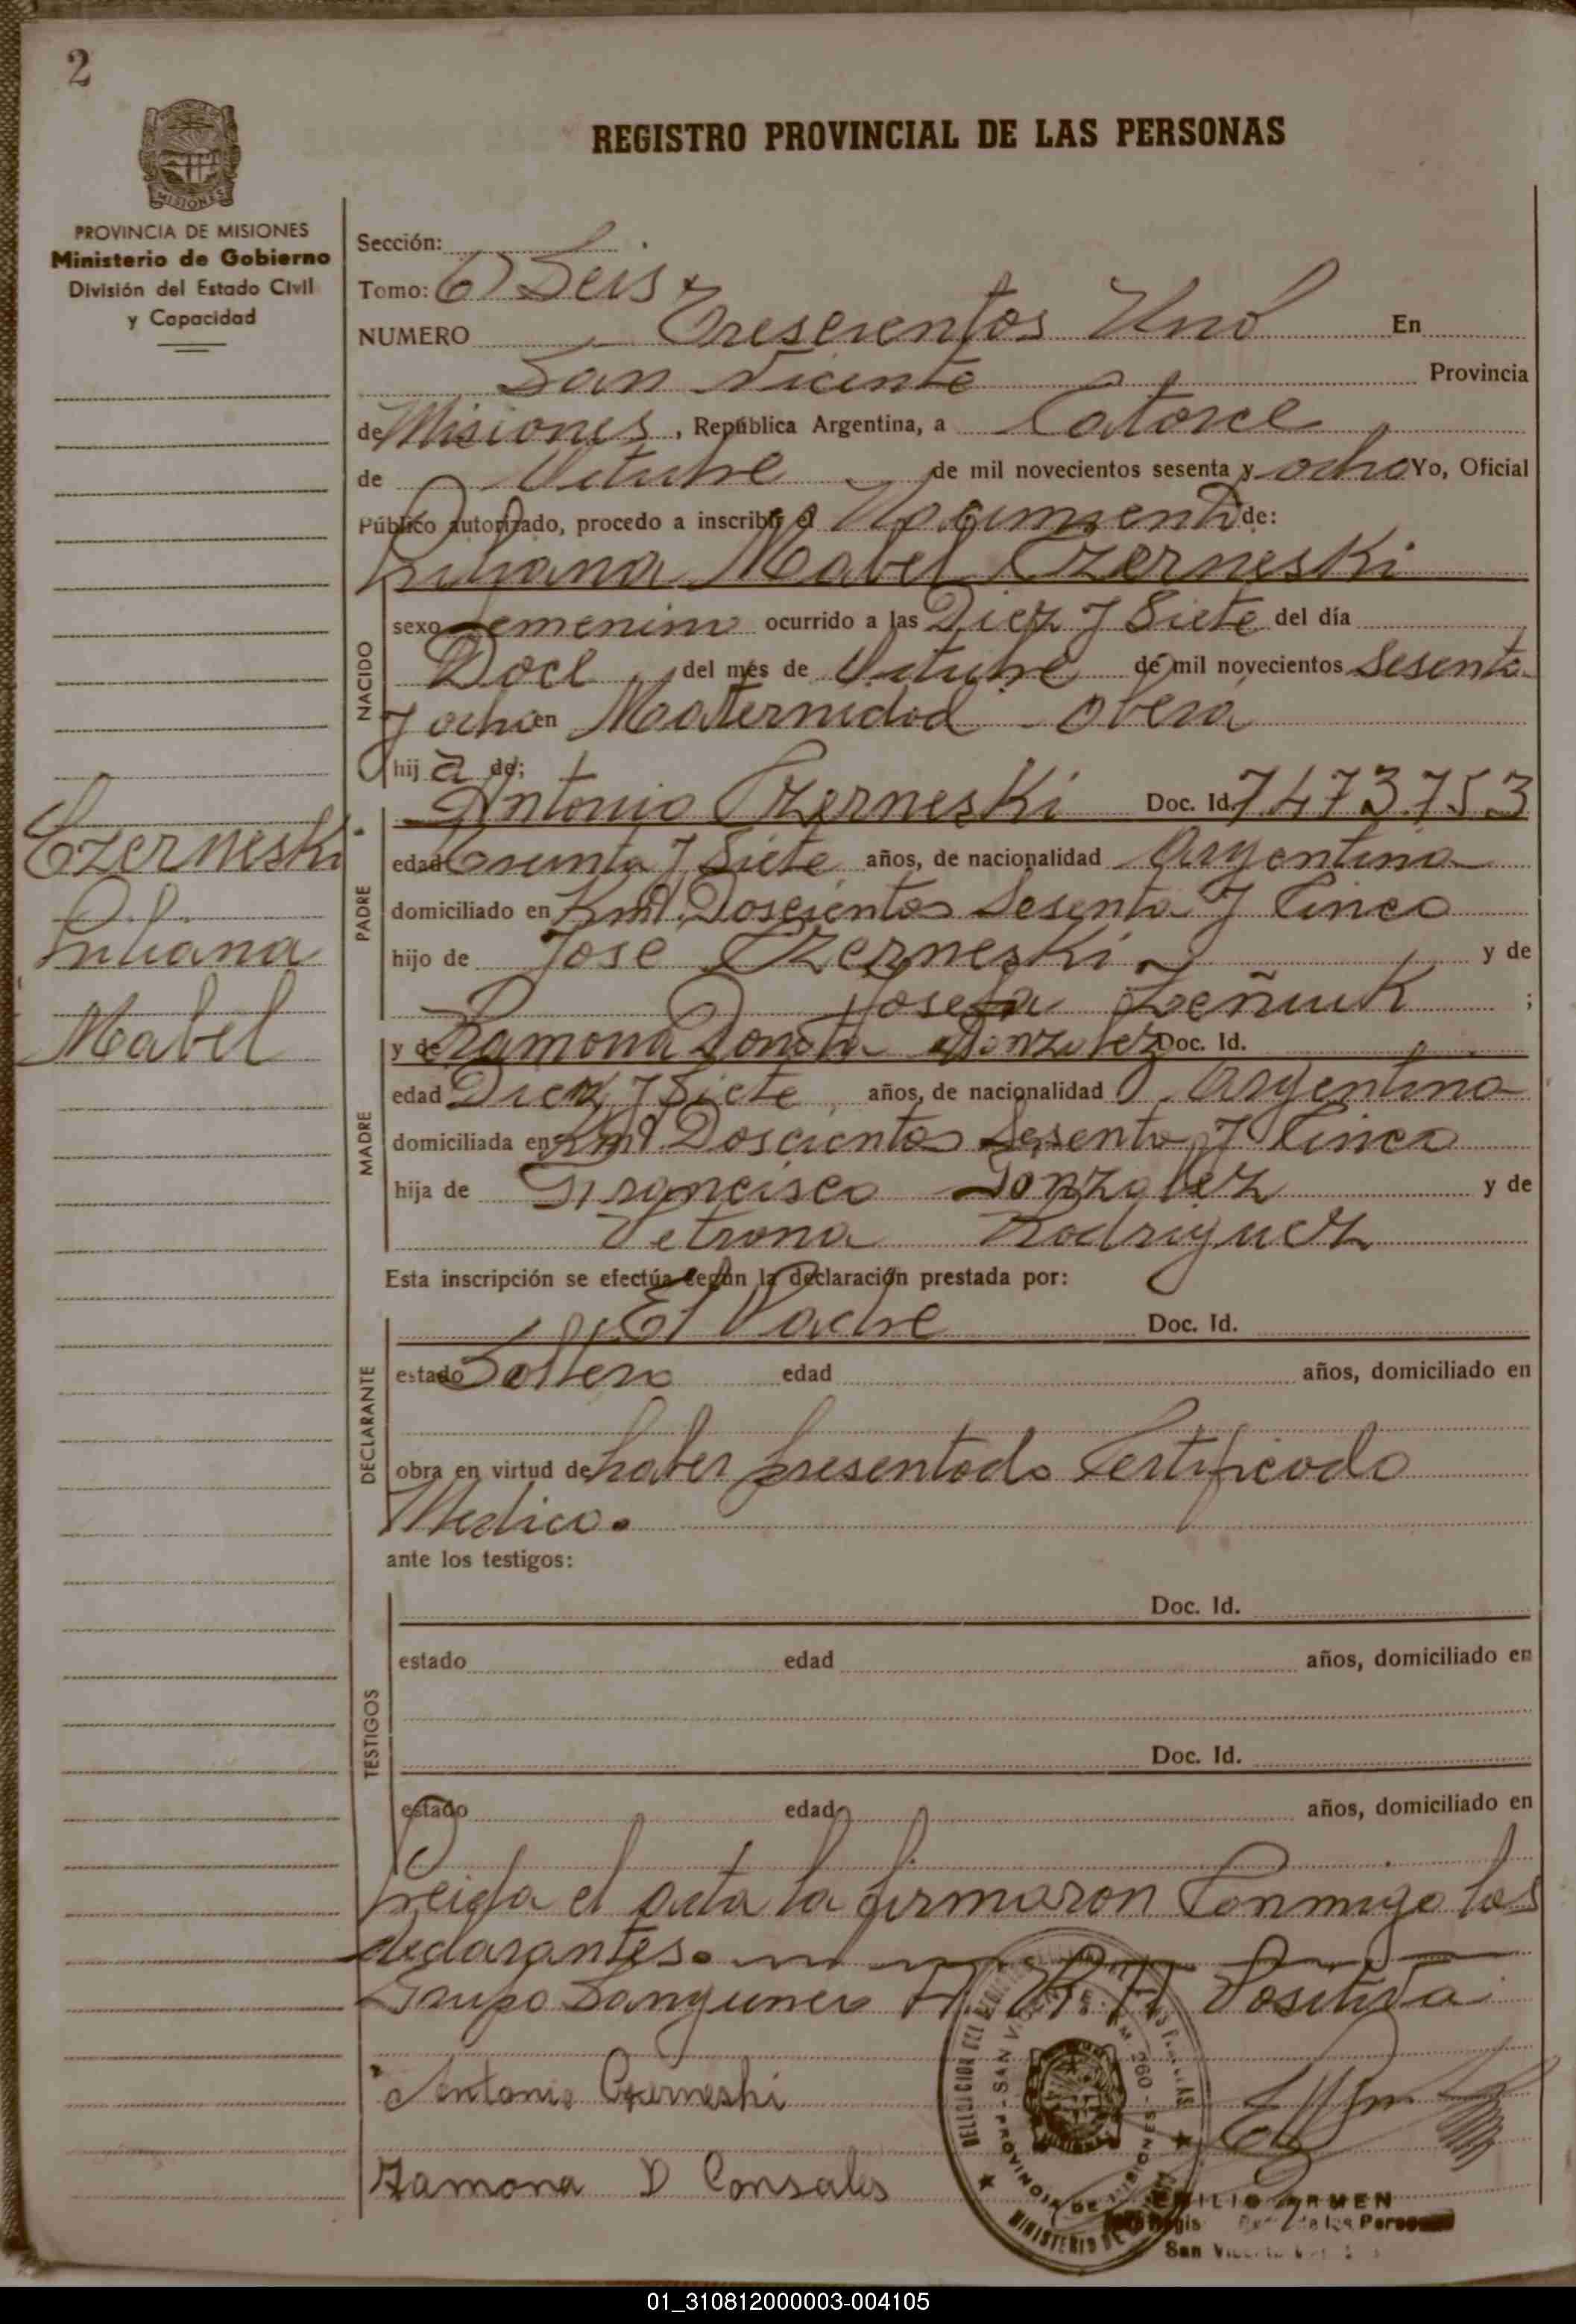 2
REGISTRO PROVINCIAL DE LAS PERSONAS
MISIONES
PROVINCIA DE MISIONES
Ministerio de Gobierno
División del Estado Civil
y Capacidad
Sección:
Tomo: 6) Seis
NUMERO Trescientos Uno En
San Vicente Provincia
de Misiones, República Argentina, a Catorce
de Octubre de mil novecientos sesenta y ocho Yo, Oficial
Público autorizado, procedo a inscribir el Nacimiento de:
Liliana Mabel Czerneski
NACIDO
sexo Femenino ocurrido a las Diez y Siete del día
Doce del mes de Octubre de mil novecientos Sesenta
y ocho en Maternidad Oberá
hij a de;
Czerneski
Liliana
Mabel
PADRE
Antonio Czerneski Doc. Id. 7473753
edad Treinta y Siete años, de nacionalidad Argentina
domiciliado en Kmt. Doscientos Sesenta y Cinco
hijo de Jose Czerneski y de
Josefa ;
MADRE
y de Ramona Gonzalez Doc. Id.
edad Diez y Siete años, de nacionalidad Argentina
domiciliada en Kmt. Doscientos Sesenta y Cinco
hija de Francisco Gonzalez y de
Petrona Rodriguez
Esta inscripción se efectúa según la declaración prestada por:
DECLARANTE
El Padre Doc. Id.
estado Soltero edad años, domiciliado en
obra en virtud de haber presentado Certificado
Medico.
ante los testigos:
TESTIGOS
Doc. Id.
estado edad años, domiciliado en
Doc. Id.
estado edad años, domiciliado en
Leida el acta la firmaron Conmigo los
declarantes.
Grupo Sanguineo A. RH Positiva
Antonio Czerneski
Ramona D Consales
PROVINCIA DE MISIONES
MINISTERIO DE
San
01_310812000003-004105